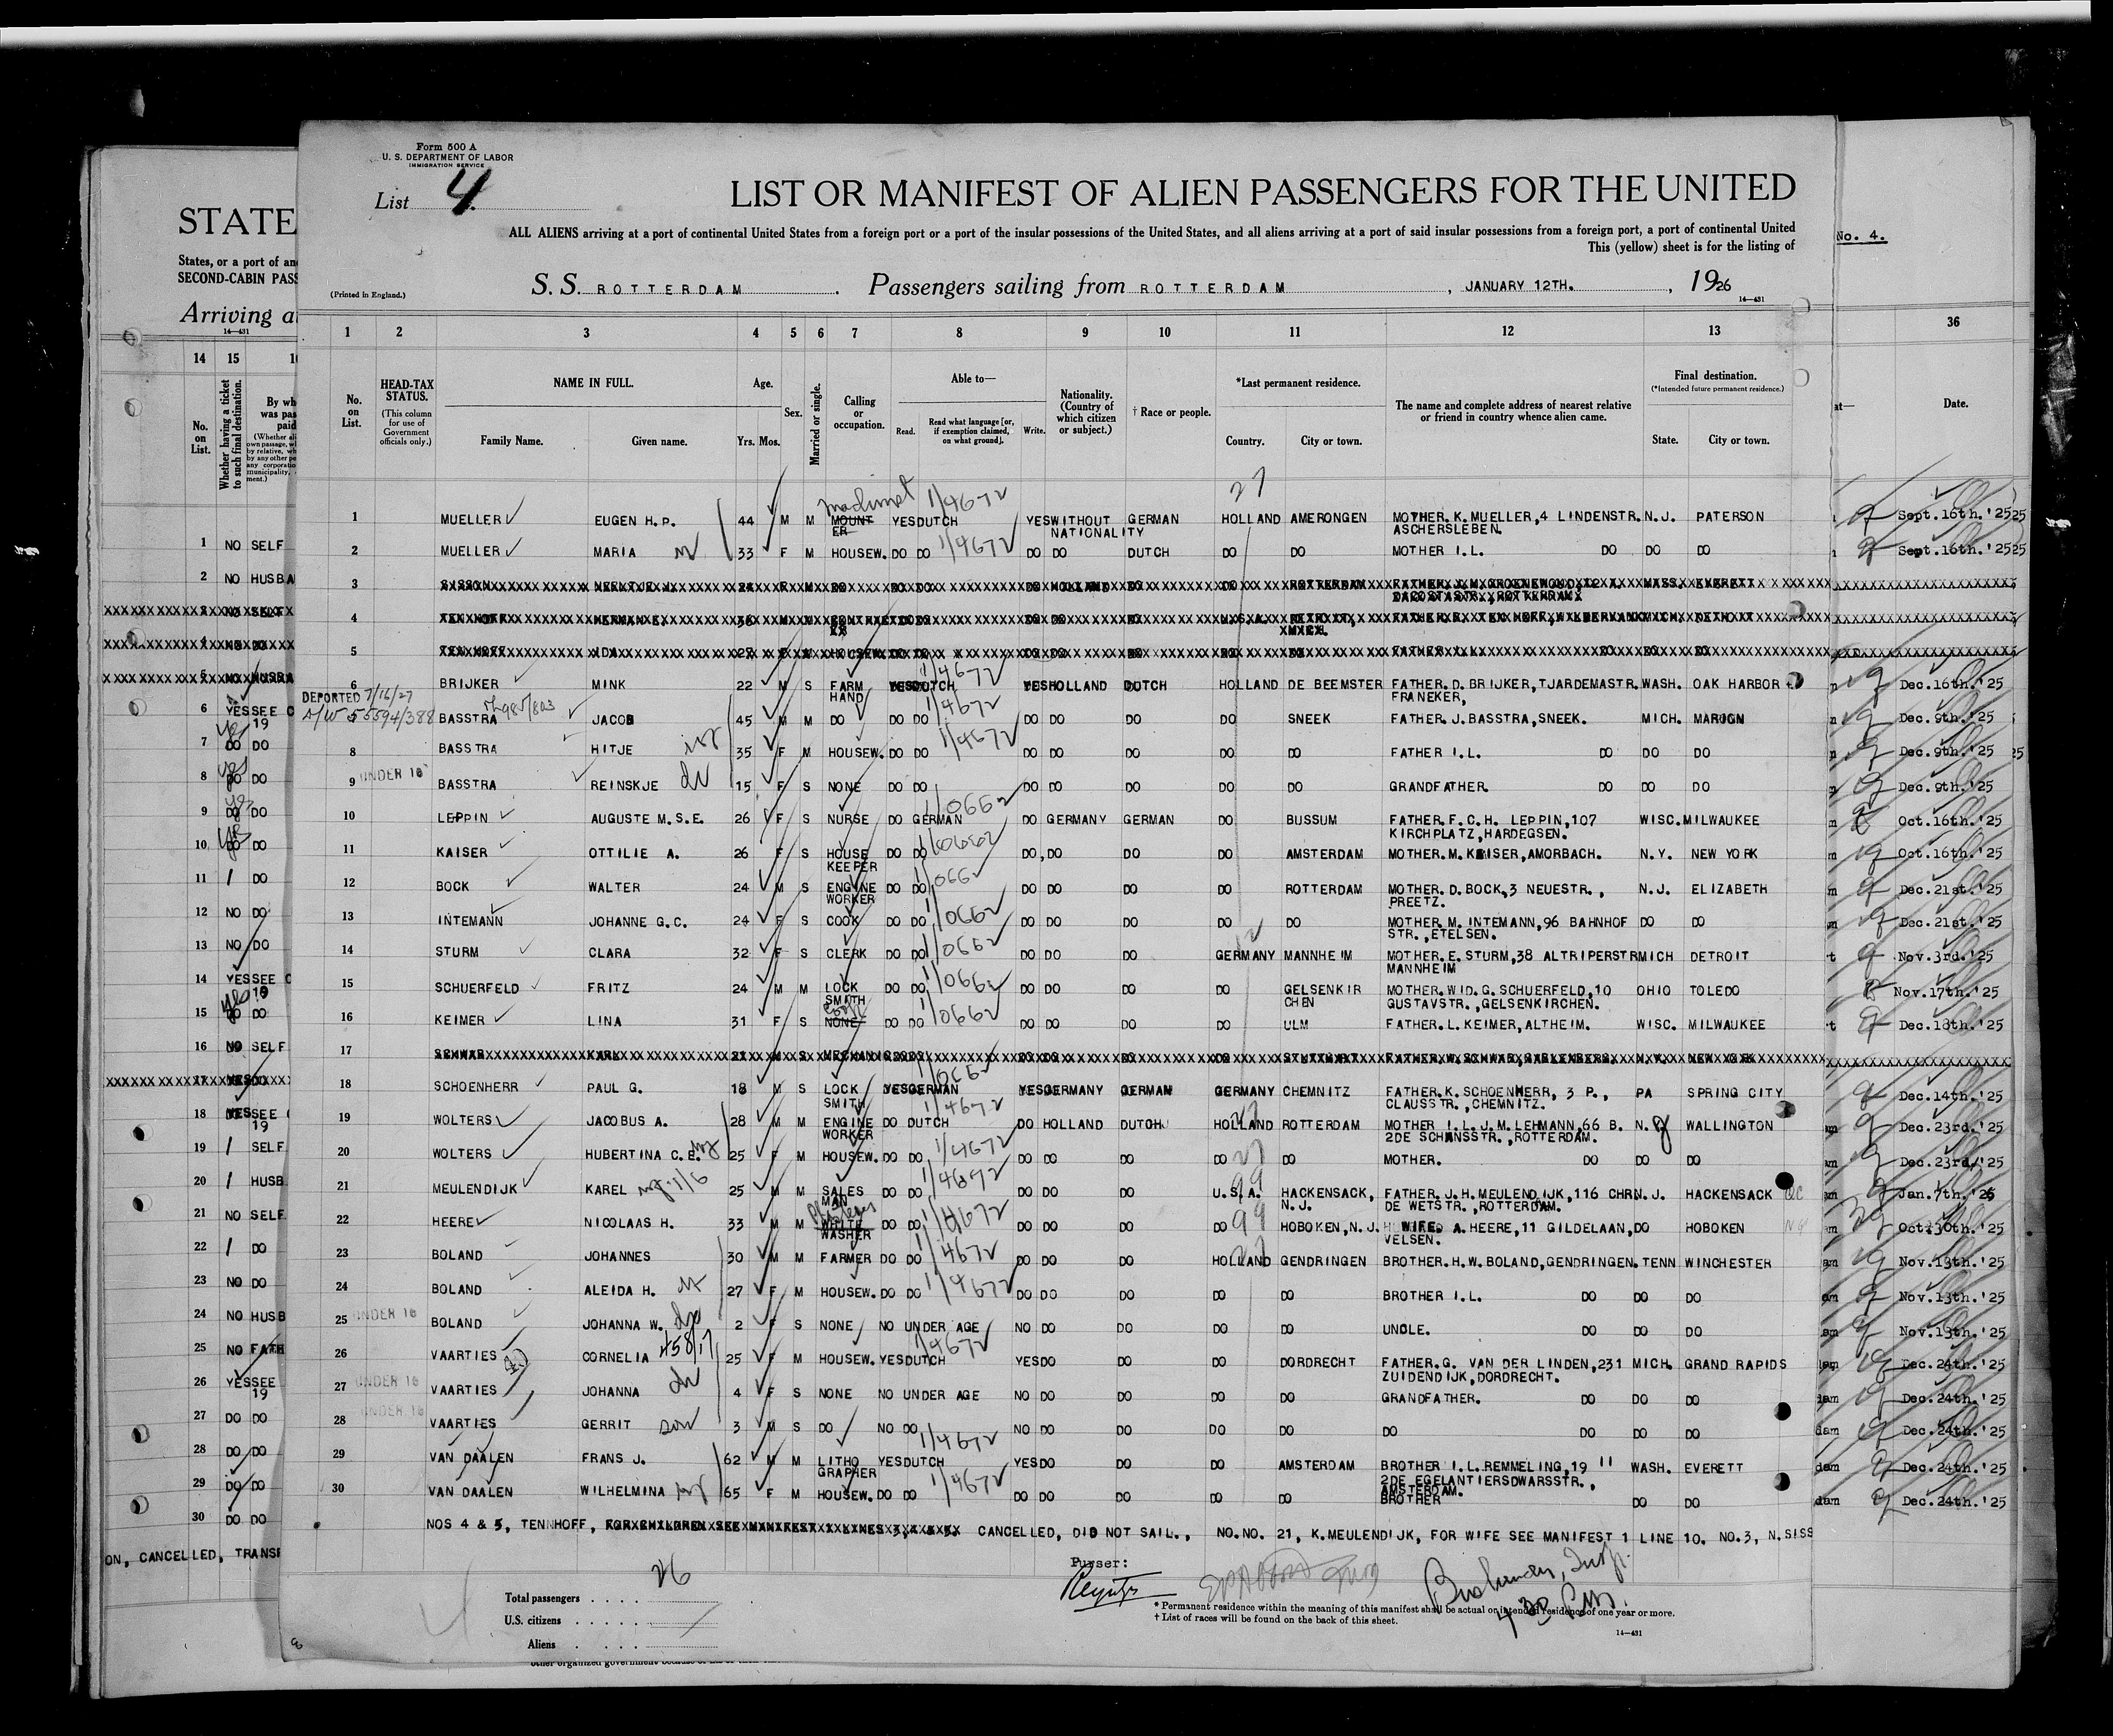 Form 500 A
U. S. DEPARTMENT OF LABOR
IMMIGRATION SERVICE
List 4.
LIST OR MANIFEST OF ALIEN PASSENGERS FOR THE UNITED
ALL ALIENS arriving at a port of continental United States from a foreign port or a port of the insular possessions of the United States, and all aliens arriving at a port of said insular possessions from a foreign port, a port of continental United
This (yellow) sheet is for the listing of
(Printed in England.)
S. S. ROTTERDAM. Passengers sailing from ROTTERDAM, JANUARY 12TH., 1926
14—431
1 2 3 4 5 6 7 8 9 10 11 12 13
No. on List.
HEAD-TAX STATUS.
(This column for use of Government officials only.)
NAME IN FULL.
Family Name. Given name.
Age.
Yrs. Mos.
Sex.
Married or single.
Calling or occupation.
Able to—
Read. Read what language [or, if exemption claimed, on what ground]. Write.
Nationality. (Country of which citizen or subject.)
† Race or people.
*Last permanent residence.
Country. City or town.
The name and complete address of nearest relative or friend in country whence alien came.
Final destination.
(*Intended future permanent residence.)
State. City or town.
27
1 MUELLER EUGEN H.P. 44 M M MOUNT ER YES DUTCH 1/4672 YES WITHOUT NATIONALITY GERMAN HOLLAND AMERONGEN MOTHER.K.MUELLER,4 LINDENSTR. ASCHERSLEBEN. N.J. PATERSON
2 MUELLER MARIA 33 F M HOUSEW. DO DO 1/4672 DO DO DUTCH DO DO MOTHER I.L. DO DO DO
3 SISSON NEELTJE J. 24 F M DO DO DO DO HOLLAND DO DO ROTTERDAM MASS. EVERETT
4 TEN HOFF HERMAN 36 M M DO DO DO U.S.A. DETROIT, MICH. DETROIT
5 TEN HOFF IDA F M HOUSEW. DO DO DO DO DO DO DO FATHER I.L. DO DO DO
6 BRIJKER MINK 22 M S FARM HAND YES DUTCH 1/4672 YES HOLLAND DUTCH HOLLAND DE BEEMSTER FATHER.D.BRIJKER,TJARDEMASTR. FRANEKER, WASH. OAK HARBOR
DEPORTED 7/16/27
55594/388 BASSTRA JACOB 45 M M DO DO DO 1/4672 DO DO DO DO SNEEK FATHER.J.BASSTRA,SNEEK. MICH. MARION
8 BASSTRA HITJE 35 F M HOUSEW. DO DO 1/4672 DO DO DO DO DO FATHER I.L. DO DO DO
9 UNDER 16 BASSTRA REINSKJE 15 F S NONE DO DO DO DO DO DO DO GRANDFATHER. DO DO DO
10 LEPPIN AUGUSTE M.S.E. 26 F S NURSE DO GERMAN 1/0662 DO GERMANY GERMAN DO BUSSUM FATHER.F.C.H. LEPPIN,107 KIRCHPLATZ,HARDEGSEN. WISC. MILWAUKEE
11 KAISER OTTILIE A. 26 F S HOUSE KEEPER DO DO 1/0662 DO,DO DO DO AMSTERDAM MOTHER.M.KAISER,AMORBACH. N.Y. NEW YORK
12 BOCK WALTER 24 M S ENGINE WORKER DO DO 1/0662 DO DO DO DO ROTTERDAM MOTHER.D.BOCK,3 NEUESTR., PREETZ. N.J. ELIZABETH
13 INTEMANN JOHANNE G.C. 24 F S COOK DO DO 1/0662 DO DO DO DO DO MOTHER M.INTEMANN,96 BAHNHOF STR.,ETELSEN. DO DO
14 STURM CLARA 32 F S CLERK DO DO 1/0662 DO DO DO GERMANY MANNHEIM MOTHER.E.STURM,38 ALTRIPERSTR MANNHEIM MICH DETROIT
15 SCHUERFELD FRITZ 24 M M LOCK SMITH DO DO 1/0662 DO DO DO DO GELSENKIR CHEN MOTHER.WID.G.SCHUERFELD,10 GUSTAVSTR.,GELSENKIRCHEN. OHIO TOLEDO
16 KEIMER LINA 31 F S NONE DO DO 1/0662 DO DO DO DO ULM FATHER.L.KEIMER,ALTHEIM. WISC. MILWAUKEE
17 SCHWAB KARL 21 M S MECHANIC DO DO DO DO DO DO STUTTGART FATHER.W.SCHWAB,GABLENBERG. N.Y. NEW YORK
18 SCHOENHERR PAUL G. 18 M S LOCK SMITH YES GERMAN 1/0662 YES GERMANY GERMAN GERMANY CHEMNITZ FATHER.K.SCHOENHERR, 3 P., CLAUSSTR.,CHEMNITZ. PA SPRING CITY
19 WOLTERS JACOBUS A. 28 M M ENGINE WORKER DO DUTCH 1/4672 DO HOLLAND DUTCH HOLLAND ROTTERDAM MOTHER I.L.J.M.LEHMANN,66 B. 2DE SCHANSSTR.,ROTTERDAM. N.J WALLINGTON
20 WOLTERS HUBERTINA C.E. 25 F M HOUSEW. DO DO 1/4672 DO DO DO DO 27 DO MOTHER. DO DO DO
21 MEULENDIJK KAREL 25 M M SALES MAN DO DO 1/4672 DO DO DO U.S.A. 99 HACKENSACK, N.J. FATHER.J.H.MEULENDIJK,116 CHR DE WETSTR.,ROTTERDAM. N.J. HACKENSACK
22 HEERE NICOLAAS H. 33 M M WHITE WASHER DO DO 1/4672 DO DO DO DO 99 HOBOKEN,N.J. WIFE. A.HEERE,11 GILDELAAN, VELSEN. DO HOBOKEN
23 BOLAND JOHANNES 30 M M FARMER DO DO 1/4672 DO DO DO HOLLAND GENDRINGEN BROTHER.H.W.BOLAND,GENDRINGEN. TENN WINCHESTER
24 BOLAND ALEIDA H. 27 F M HOUSEW. DO DO 1/4672 DO DO DO DO DO BROTHER I.L. DO DO DO
25 UNDER 16 BOLAND JOHANNA W. 2 F S NONE NO UNDER AGE NO DO DO DO DO UNCLE. DO DO DO
26 VAARTIES CORNELIA 25 F M HOUSEW. YES DUTCH 1/4672 YES DO DO DO DORDRECHT FATHER.G. VAN DER LINDEN,231 ZUIDENDIJK,DORDRECHT. MICH. GRAND RAPIDS
27 UNDER 16 VAARTIES JOHANNA 4 F S NONE NO UNDER AGE NO DO DO DO DO GRANDFATHER. DO DO DO
28 UNDER 16 VAARTIES GERRIT son 3 M S DO NO DO NO DO DO DO DO DO DO DO DO
29 VAN DAALEN FRANS J. 62 M M LITHO GRAPHER YES DUTCH 1/4672 YES DO DO DO AMSTERDAM BROTHER I.L.REMMELING,19 II 2DE EGELANTIERSDWARSSTR., AMSTERDAM. WASH. EVERETT
30 VAN DAALEN WILHELMINA 65 F M HOUSEW. DO DO 1/4672 DO DO DO DO DO BROTHER DO DO
NOS 4 & 5, TENNHOFF, FOR CHILDREN SEE MANIFEST 1 LINES 3,4 & 5. CANCELLED, DID NOT SAIL., NO.NO. 21, K.MEULENDIJK, FOR WIFE SEE MANIFEST 1 LINE 10. NO.3, N.SISS
Purser:
Total passengers 26
U.S. citizens
Aliens
* Permanent residence within the meaning of this manifest shall be actual or intended residence of one year or more.
† List of races will be found on the back of this sheet.
14—431
STATE
States, or a port of an
SECOND-CABIN PASS
Arriving a
14—431
14 15
No. on List.
Whether having a ticket to such final destination.
By wh
was pas
paid
1 NO SELF
2 NO HUSBA
3 NO SELF
4 NO DO
5 NO HUSBA
6 YES SEE C 19
7 DO DO
8 DO DO
9 DO DO
10 DO DO
11 / DO
12 NO DO
13 NO DO
14 YES SEE C 19
15 DO DO
16 NO SELF
17 YES DO
18 YES SEE 19
19 / SELF
20 / HUSB
21 NO SELF
22 / DO
23 NO DO
24 NO HUSB
25 NO FATH
26 YES SEE 19
27 DO DO
28 DO DO
29 DO DO
30 DO DO
ON, CANCELLED, TRANSF
No. 4.
36
at—
Date.
Sept.16th.'25
Sept.16th.'25
Dec.16th.'25
Dec.9th.'25
Dec.9th.'25
Dec.9th.'25
Oct.16th.'25
Oct.16th.'25
Dec.21st.'25
Dec.21st.'25
Nov.3rd.'25
Nov.17th.'25
Dec.18th.'25
Dec.14th.'25
Dec.23rd.'25
Dec.23rd.'25
Jan.7th.'26
Oct.30th.'25
Nov.13th.'25
Nov.13th.'25
Nov.13th.'25
Dec.24th.'25
Dec.24th.'25
Dec.24th.'25
Dec.24th.'25
Dec.24th.'25